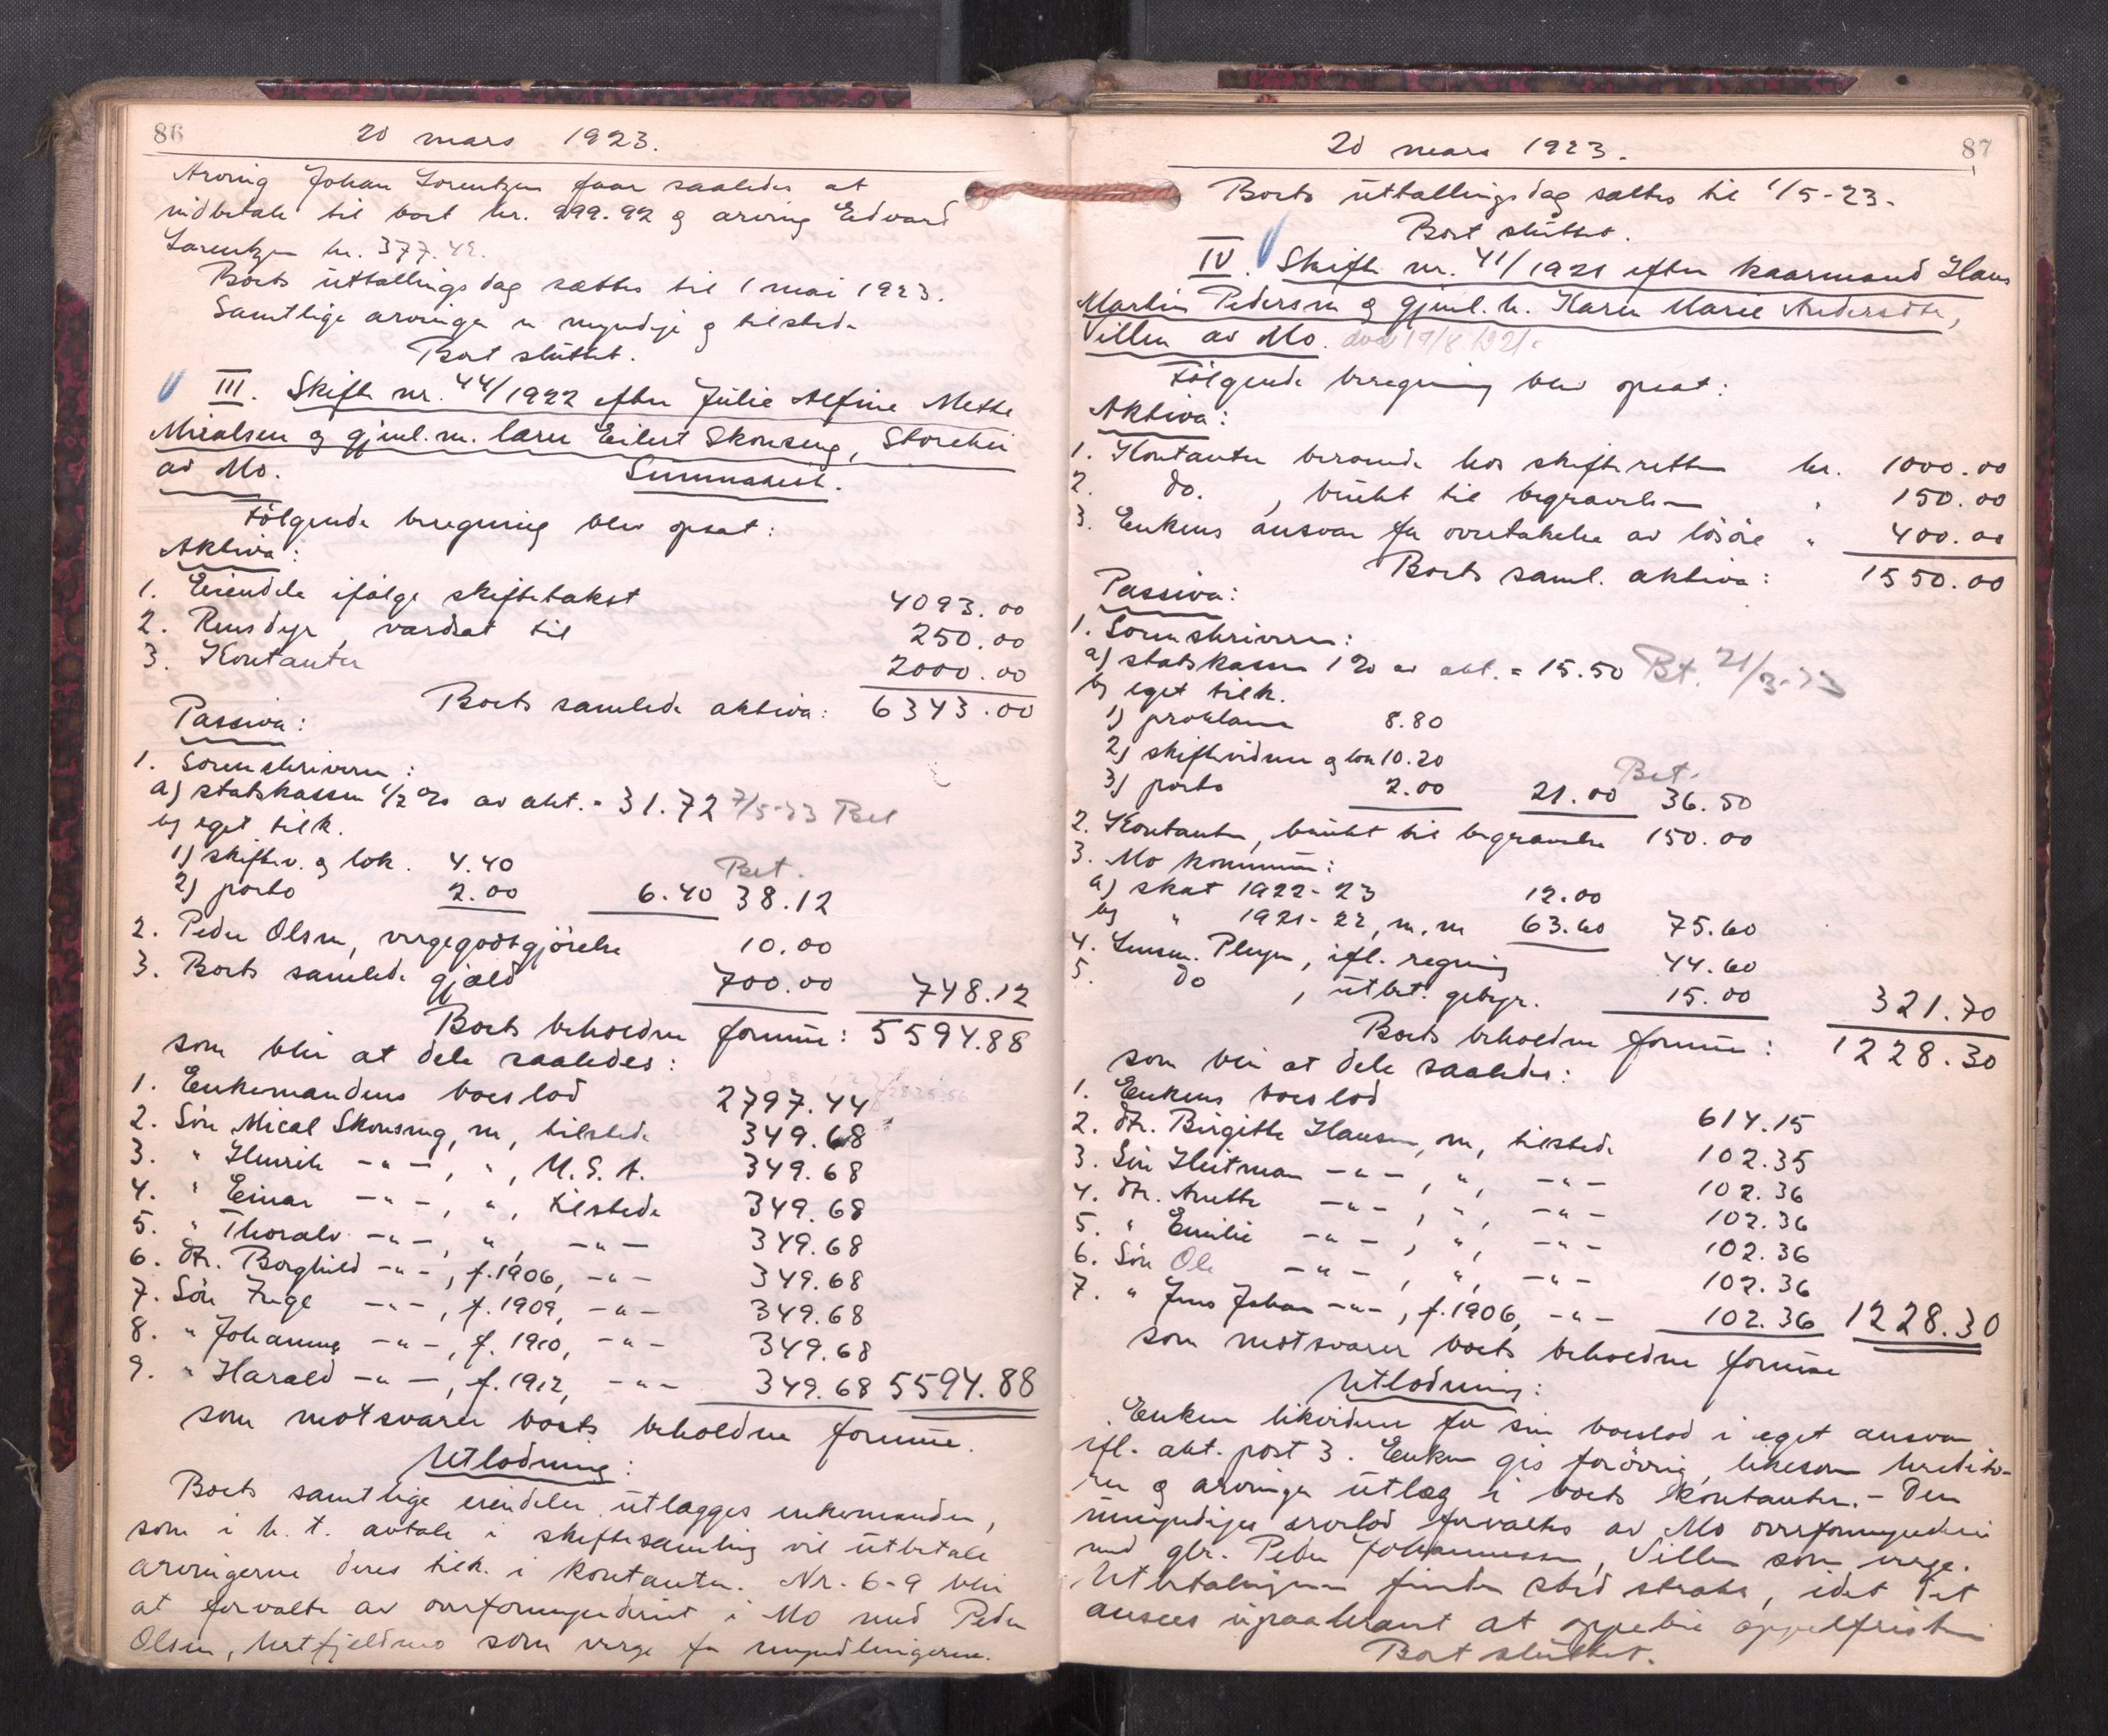 86
20 mars 1923.
Arving Johan Lorentzen faar saaledes at
indbetale til boet kr. 999.92 og arving Edvard
Lorentzen kr. 377.42.
Boets uttallingsdag sættes til 1 mai 1923.
Samtlige arvinger er myndige og tilstede
Boet sluttet.
III. Skifte nr. 44/1922 efter Julie Alfine Mette
Micalsen og gjenl. m. lærer Eilert Skonseng, Storehei
av Mo. Summarisk.
Følgende beregning blev opsat:
Aktiva:
1. Eiendele ifølge skiftetakst 4093.00
2. Rensdyr, værdsat til 250.00
3. Kontanter 2000.00
Boets samlede aktiva: 6343.00
Passiva:
1. Sorenskriveren:
a) statskassen 1/2 % av akt. = 31.72 7/5-23 Bet
b) eget tilk.
1) skiftev. og lok. 4.40 Bet.
2) porto 2.00 6.40 38.12
2. Peder Olsen, vergegodtgjørelse 10.00
3. Boets samlede gjæld 700.00 748.12
Boets beholdne formue: 5594.88
som blir at dele saaledes:
1. Enkemandens boeslod 2797.44
2. Søn Mical Skonseng, m, tilstede 349.68
3. " Henrik -"-, ", U.S.A. 349.68
4. " Einar -"-, ", tilstede 349.68
5. " Thoralv -"-, ", -"- 349.68
6. Dtr. Borghild -"-, f. 1906, -"- 349.68
7. Søn Inge -"-, f. 1909, -"- 349.68
8. " Johannes -"-, f. 1910, -"- 349.68
9. " Harald -"-, f. 1912, -"- 349.68 5594.88
som motsvarer boets beholdne formue.
Utlodning:
Boets samtlige eiendeler utlægges enkemanden,
som i h. t. avtale i skiftesamling vil utbetale
arvingerne deres tilk. i kontanter. Nr. 6-9 blir
at forvalte av overformynderiet i Mo med Peder
Olsen, Urtfjeldmo som verge for myndlingerne.
87
20 mars 1923.
Boets uttallingsdag sættes til 1/5-23.
Boet sluttet.
IV. Skifte nr. 41/1921 efter kaarmand Hans
Martin Pedersen og gjenl. h. Karen Marie Andersdtr,
Villen av Mo. død 19/8 1921.
Følgende beregning blev opsat:
Aktiva:
1. Kontanter beroende hos skifteretten kr. 1000.00
2. do. , brukt til begravelsen " 150.00
3. Enkens ansvar for overtakelse av løsøre " 400.00
Boets saml. aktiva: 1550.00
Passiva:
1. Sorenskriveren:
a) statskassen 1 % av akt. = 15.50 Bt. 21/3-23
b) eget tilk.
1) proklama 8.80
2) skiftevidner og lok 10.20 Bet.
3) porto 2.00 21.00 36.50
2. Kontanter, brukt til begravelse 150.00
3. Mo kommune:
a) skat 1922-23 12.00
b) " 1921-22, m.m 63.60 75.60
4. Lensm. Pleym, ifl. regning 44.60
5. do , utbet. gebyr. 15.00 321.70
Boets beholdne formue: 1228.30
som blir at dele saaledes:
1. Enkens boeslod 614.15
2. Dtr. Birgitte Hansen, m, tilstede 102.35
3. Søn Heitman -"-, ", -"- 102.36
4. Dtr. Anette -"-, ", -"- 102.36
5. " Emilie -"-, ", -"- 102.36
6. Søn Ole -"-, ", -"- 102.36
7. " Jens Johan -"-, f. 1906, -"- 102.36 1228.30
som motsvarer boets beholdne formue
Utlodning:
Enken likviderer for sin boeslod i eget ansvar
ifl. akt. post 3. Enken gis forøvrig, likesom kredito-
rer og arvinger utlæg i boets kontanter. - Den
umyndiges arvelod forvaltes av Mo overformynderi
med gbr. Peder Johannessen, Villen som verge.
Utbetalingen finder sted straks, idet det
ansees upaakrævet at oppebie appelfristen
Boet sluttet.